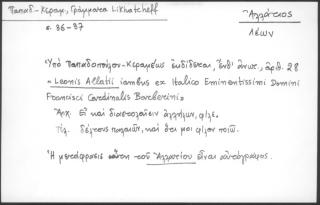 Παπαδ.-Κεραμ., Γράμματα Likhatcheff
σ. 36-37
Ἀλλάτιος
Λέων
Ὑπὸ Παπαδοπούλου-Κεραμέως ἐκδίδεται, ἔνθ' ἄνωτ., ἀριθ. 28
«Leonis Allatii iambus ex Italico Eminentissimi Domini
Francisci Cardinalis Barberini»
Ἀρχ. Εἰ καὶ διαστολαῖεν ἀλλήλων, φίλε.
Τελ. δέλτους παλαιῶν, καὶ ὅτι μοι φίλον ποιῶ.
Ἡ μετάφρασις αὕτη τοῦ Ἀλλατίου εἶναι αὐτόγραφος.